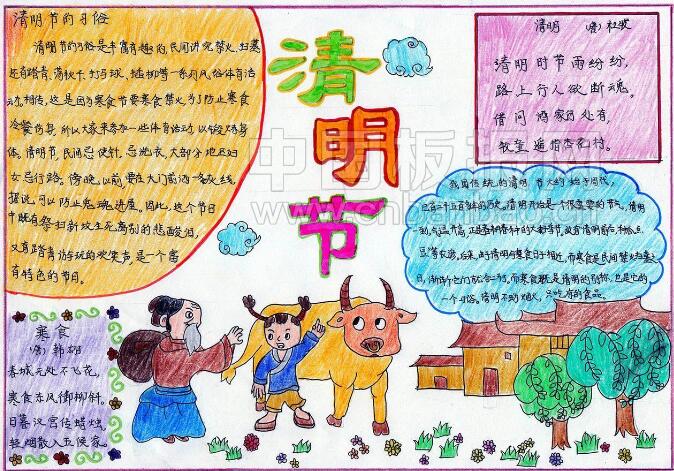 清明节的习俗
清明节的习俗是丰富有趣的,民间讲究禁火、扫墓
还有踏青、荡秋千、打马球、插柳等一系列风俗体育活
动。相传,这是因为寒食节要寒食禁火,为了防止寒食
冷餐伤身,所以大家来参加一些体育活动,以锻炼身
体。清明节,民间忌使针,忌洗衣,大部分地区妇
女忌行路。傍晚以前,要在大门前洒一条灰线,
据说可以防止鬼魂进屋。因此,这个节日
中既有祭扫新坟生死离别的悲酸泪,
又有踏青游玩的欢笑声,是一个富
有特色的节日。
清明节
清明 (唐) 杜牧
清明时节雨纷纷,
路上行人欲断魂。
借问酒家何处有,
牧童遥指杏花村。
我国传统的清明节大约始于周代,
已有二千五百多年的历史。清明开始是一个很重要的节气,清明
一到,气温升高,正是春耕春种的大好时节,故有清明前后,种瓜点
豆等农谚。后来,由于清明与寒食日子相近,而寒食是民间禁火扫墓的
日子,渐渐的它们合二为一了。而寒食既是清明的别称,也是它的
一个习俗。清明不动烟火,只吃凉的食品。
寒食
(唐) 韩翃
春城无处不飞花,
寒食东风御柳斜。
日暮汉宫传蜡烛,
轻烟散入五侯家。
中国板报网
www.cnbanbao.cn